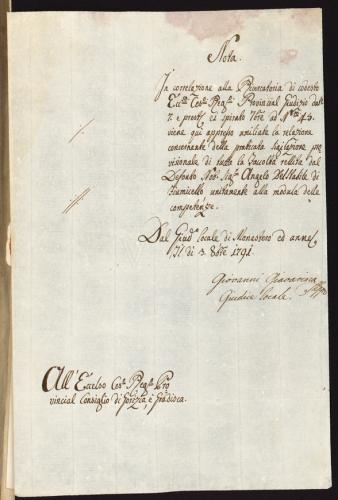 Nota.
In correlazione alla Ricercatoria di codesto
Ecc. Ces. Reg. Provincial Giudizio dalli
7 e prest. ed spirato 7bre ad N. 43.
viene qui appresso umiliata la relazione
concernente della praticata sigilazione pro
visionale di tutta la facoltà relitta dal
Defonto Nob. Sig. Angelo Dell'
Fiumicello unitamente alla modula delle
competenze.
Dal Giud. locale di Monastero ed annes.
li di 3 8bre 1791.
Giovanni
Giudice locale.
All'Eccelso Ces. Reg. Pro
vincial Consiglio di Gorizia, e Gradisca.